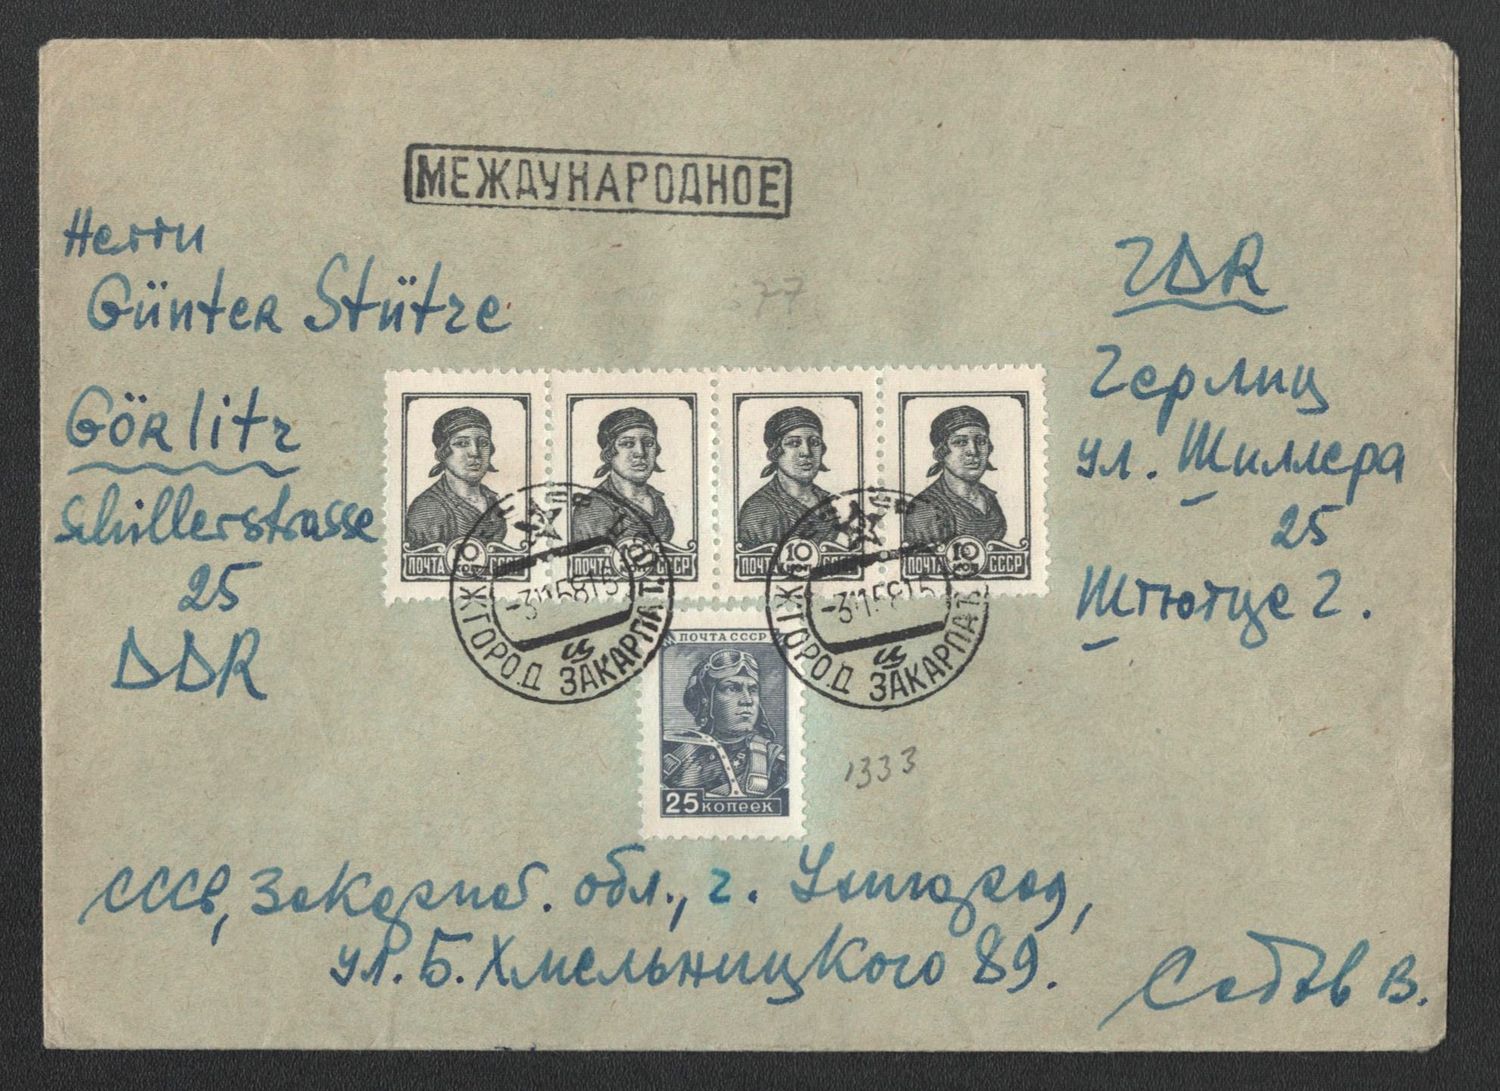 МЕЖДУНАРОДНОЕ
Herrn
Günter Stütze
Görlitz
Schillerstrasse
25
DDR
77
ГДР
Герлиц
ул. Шиллера
25
Штютце Г.
ПОЧТА 10 КОП. СССР
ПОЧТА КОП. СССР
ПОЧТА 10 КОП. СССР
ПОЧТА 10 КОП. СССР
УЖГОРОД ЗАКАРПАТ.
УЖГОРОД ЗАКАРПАТ.
ПОЧТА СССР
25 КОПЕЕК
1333
СССР, Закарпат. обл., г. Ужгород,
ул. Б. Хмельницкого 89.
В.